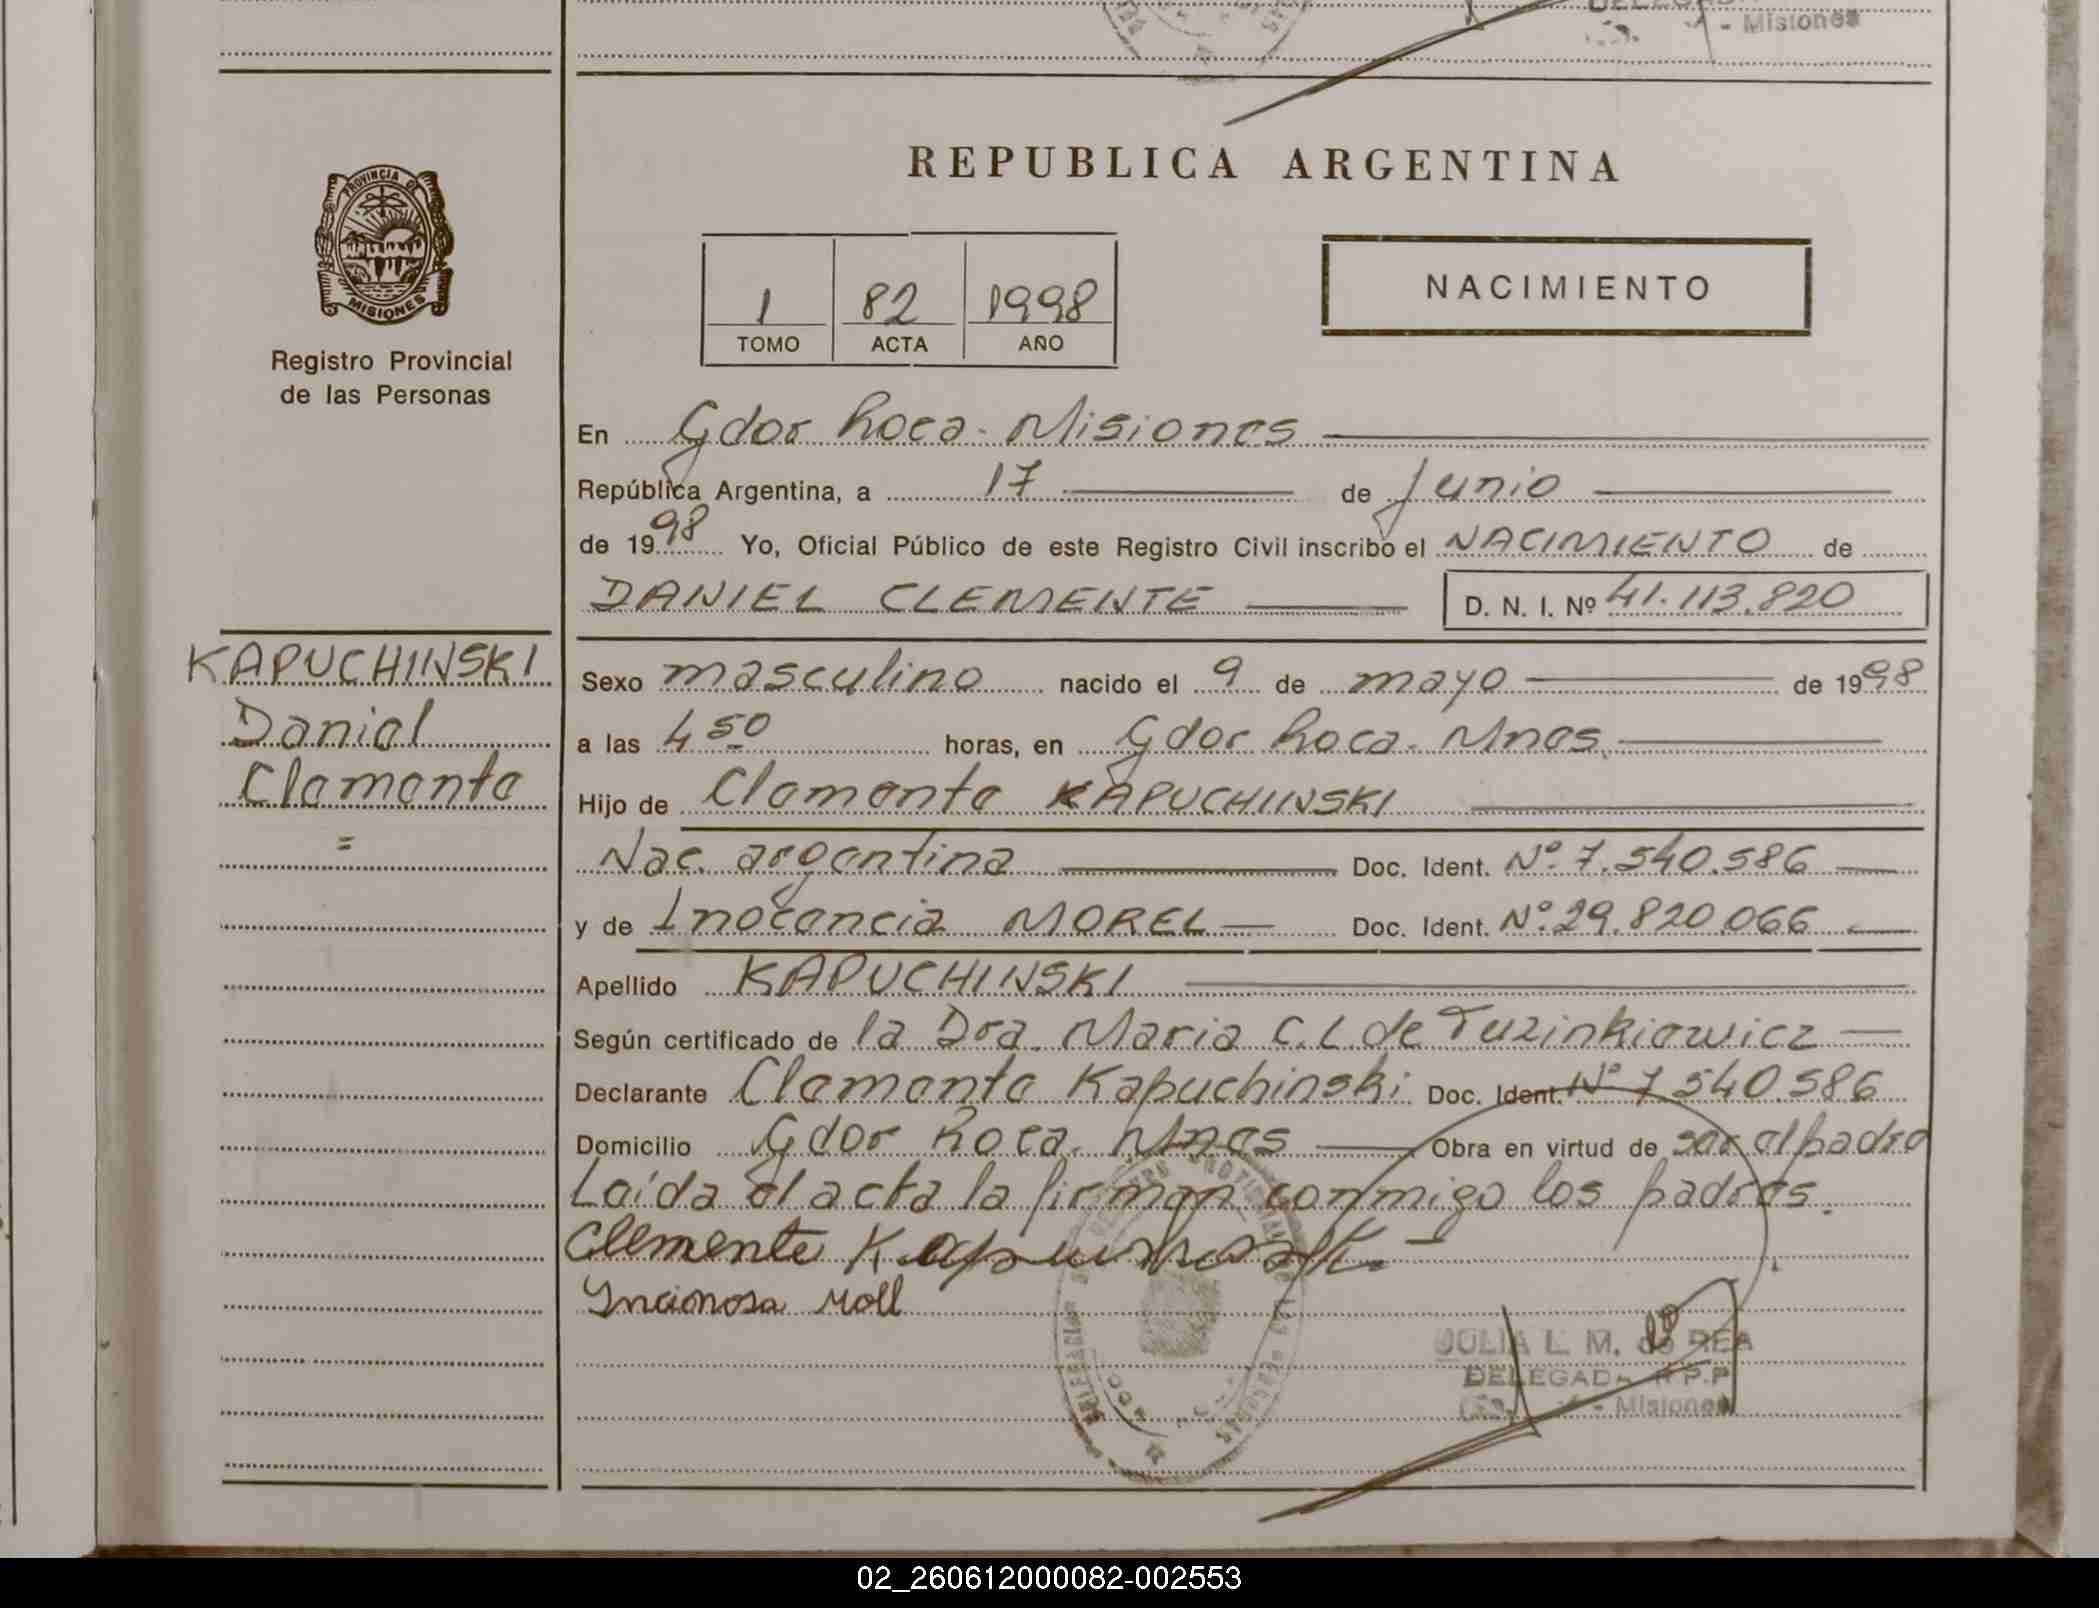 - Misiones
PROVINCIA DE
MISIONES
Registro Provincial
de las Personas
REPUBLICA ARGENTINA
1 82 1998
TOMO ACTA AÑO
NACIMIENTO
En Gdor Roca. Misiones
República Argentina, a 17 de Junio
de 1998 Yo, Oficial Público de este Registro Civil inscribo el NACIMIENTO de
DANIEL CLEMENTE D. N. I. Nº 41.113.820
KAPUCHINSKI
Daniel
Clemente
=
Sexo masculino nacido el 9 de mayo de 1998
a las 4 50 horas, en Gdor Roca. Mnes.
Hijo de Clemente KAPUCHINSKI
Nac. argentina Doc. Ident. Nº 7.540.586
y de Inocencia MOREL Doc. Ident. Nº 29.820.066
Apellido KAPUCHINSKI
Según certificado de la Dra. Maria C.L. de Tuzinkiewicz
Declarante Clemente Kapuchinski Doc. Ident. Nº 7.540.586
Domicilio Gdor Roca. Mnes Obra en virtud de ser el padre
Leída el acta la firman conmigo los padres.
Clemente
JULIA L. M. de REA
DELEGADA R.P.P.
- Misiones
02_260612000082-002553